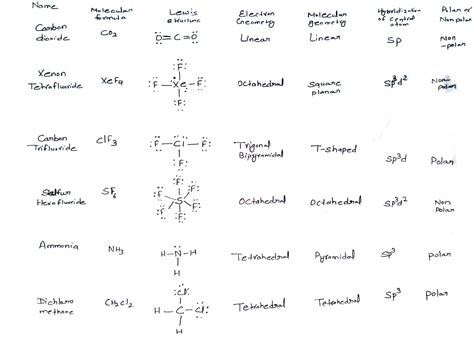 Name Molecular formula Lewis structure Electron Geometry Molecular geometry Hybridization of Central atom Polar or Nonpolar
Carbon dioxide CO2 O=C=O Linear Linear Sp Non-polar
Xenon Tetrafluoride XeF4 F F Xe F F Octahedral Square planar Sp3d2 Non-polar
Carbon Trifluoride ClF3 F-Cl-F F Trigonal Bipyramidal T-shaped Sp3d Polar
Sulfur Hexafluoride SF6 F F F S F F F Octahedral Octahedral Sp3d2 Non Polar
Ammonia NH3 H-N-H H Tetrahedral Pyramidal Sp3 polar
Dichloro methane CH2Cl2 Cl H-C-Cl H Tetrahedral Tetrahedral Sp3 Polar